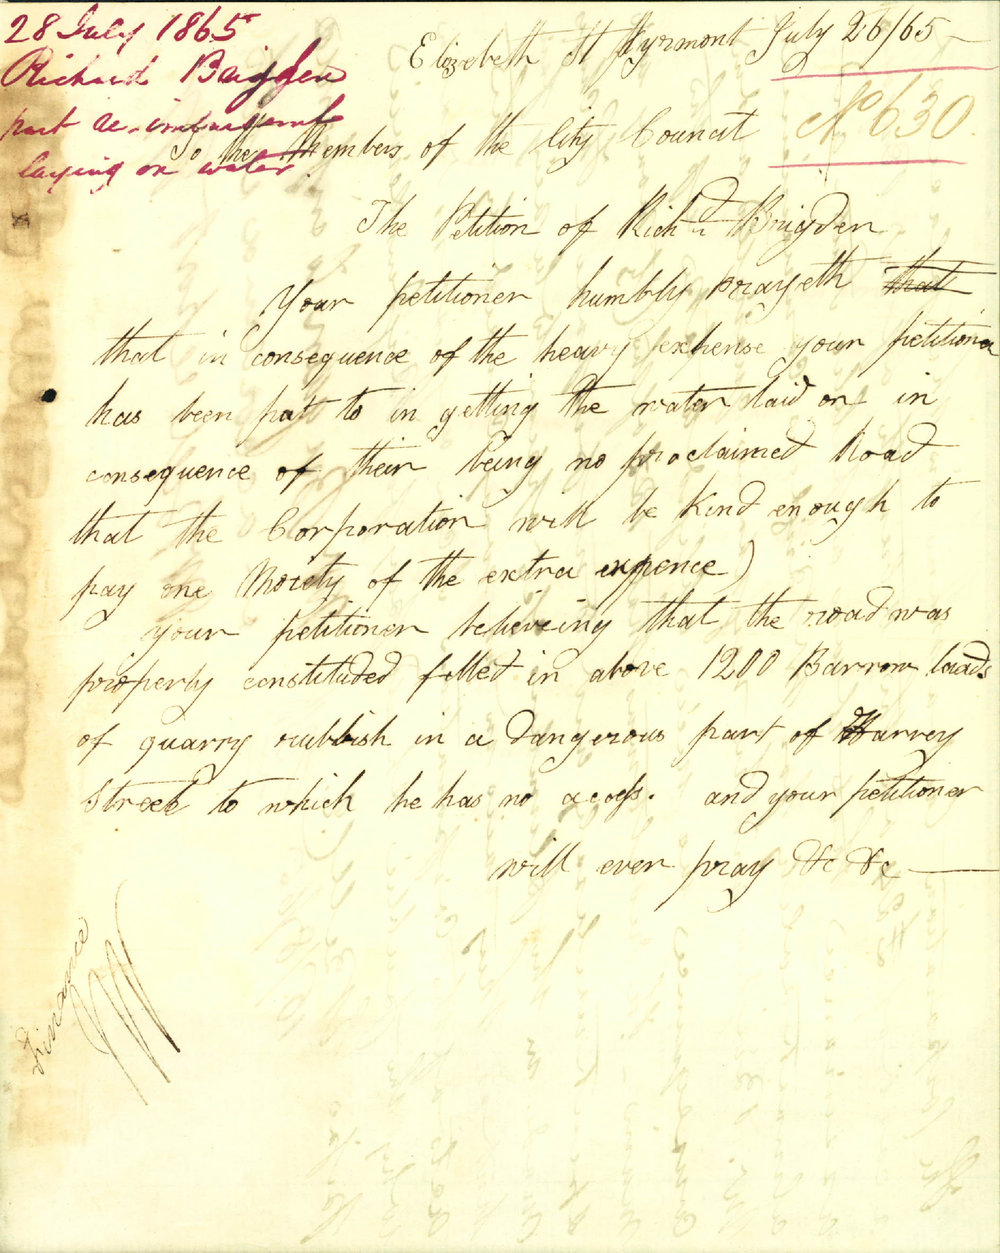 28 July 1865
Richard Brigden
part re-imbursement
laying on water.
Elizebeth St Pyrmont July 26/65
No 630.
To the Members of the City Council
The Petition of Richd Brigden
Your petitioner humbly prayeth that
that in consequence of the heavy expense your petitioner
has been put to in getting the water laid on in
consequence of their being no proclaimed Road
that the Corporation will be kind enough to
pay one Moiety of the extra expence)
your petitioner believeing that the road was
properly constituded filled in above 1200 Barrow loads
of quarry rubbish in a dangerous part of Harvey
Street to which he has no acess. and your petitioner
will ever pray &c &c
Finance